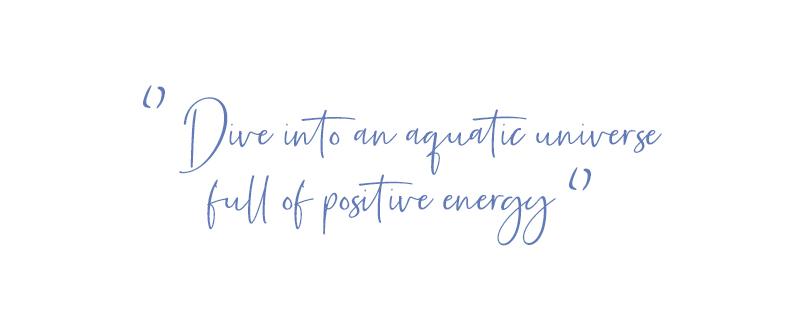 " Dive into an aquatic universe
full of positive energy "